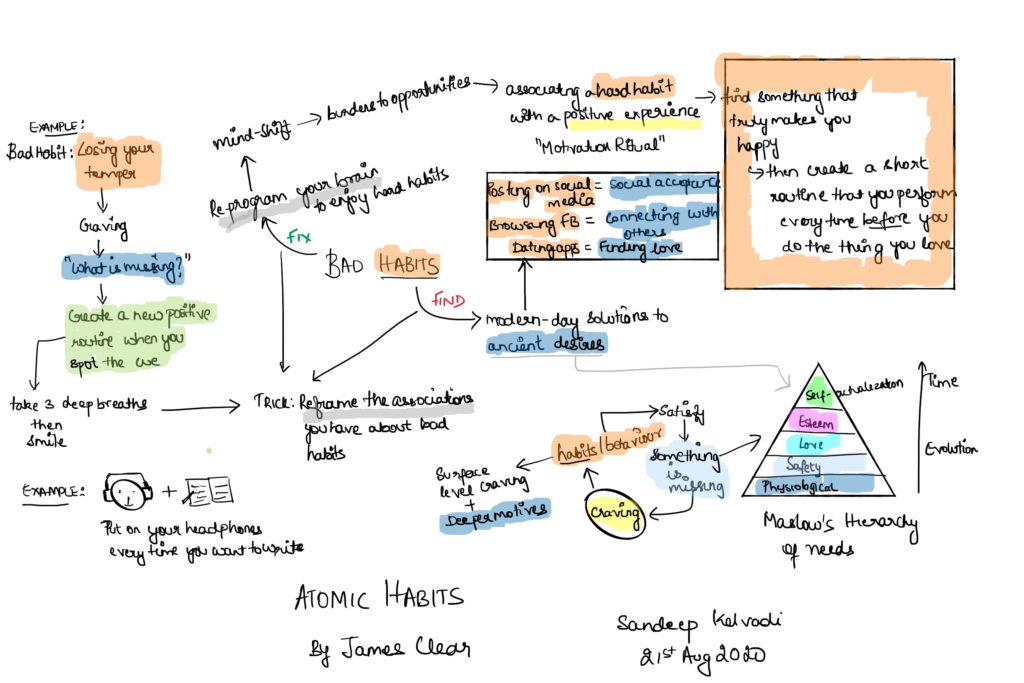 EXAMPLE:
Bad Habit: Losing your
temper
Craving
"What is missing?"
Create a new positive
routine when you
spot the cue
take 3 deep breaths
then
smile
mind-shift
burdens to opportunities
associating a hard habit
with a positive experience
"Motivation Ritual"
find something that
truly makes you
happy
then create a short
routine that you perform
every time before you
do the thing you love
Reprogram your brain
to enjoy hard habits
FIX
BAD HABITS
FIND
Posting on social = Social acceptance
media
Browsing FB = Connecting with
others
Dating apps = Finding love
modern-day solutions to
ancient desires
TRICK: Reframe the associations
you have about bad
habits
Satisfy
habits/behaviour
Something
is
missing
Craving
Surface
level craving
+
Deeper motives
Self-actualization
Esteem
Love
Safety
Physiological
Time
Evolution
Maslow's Hierarchy
of needs
EXAMPLE:
+
Put on your headphones
every time you want to write
ATOMIC HABITS
By James Clear
Sandeep Kelvadi
21st Aug 2020